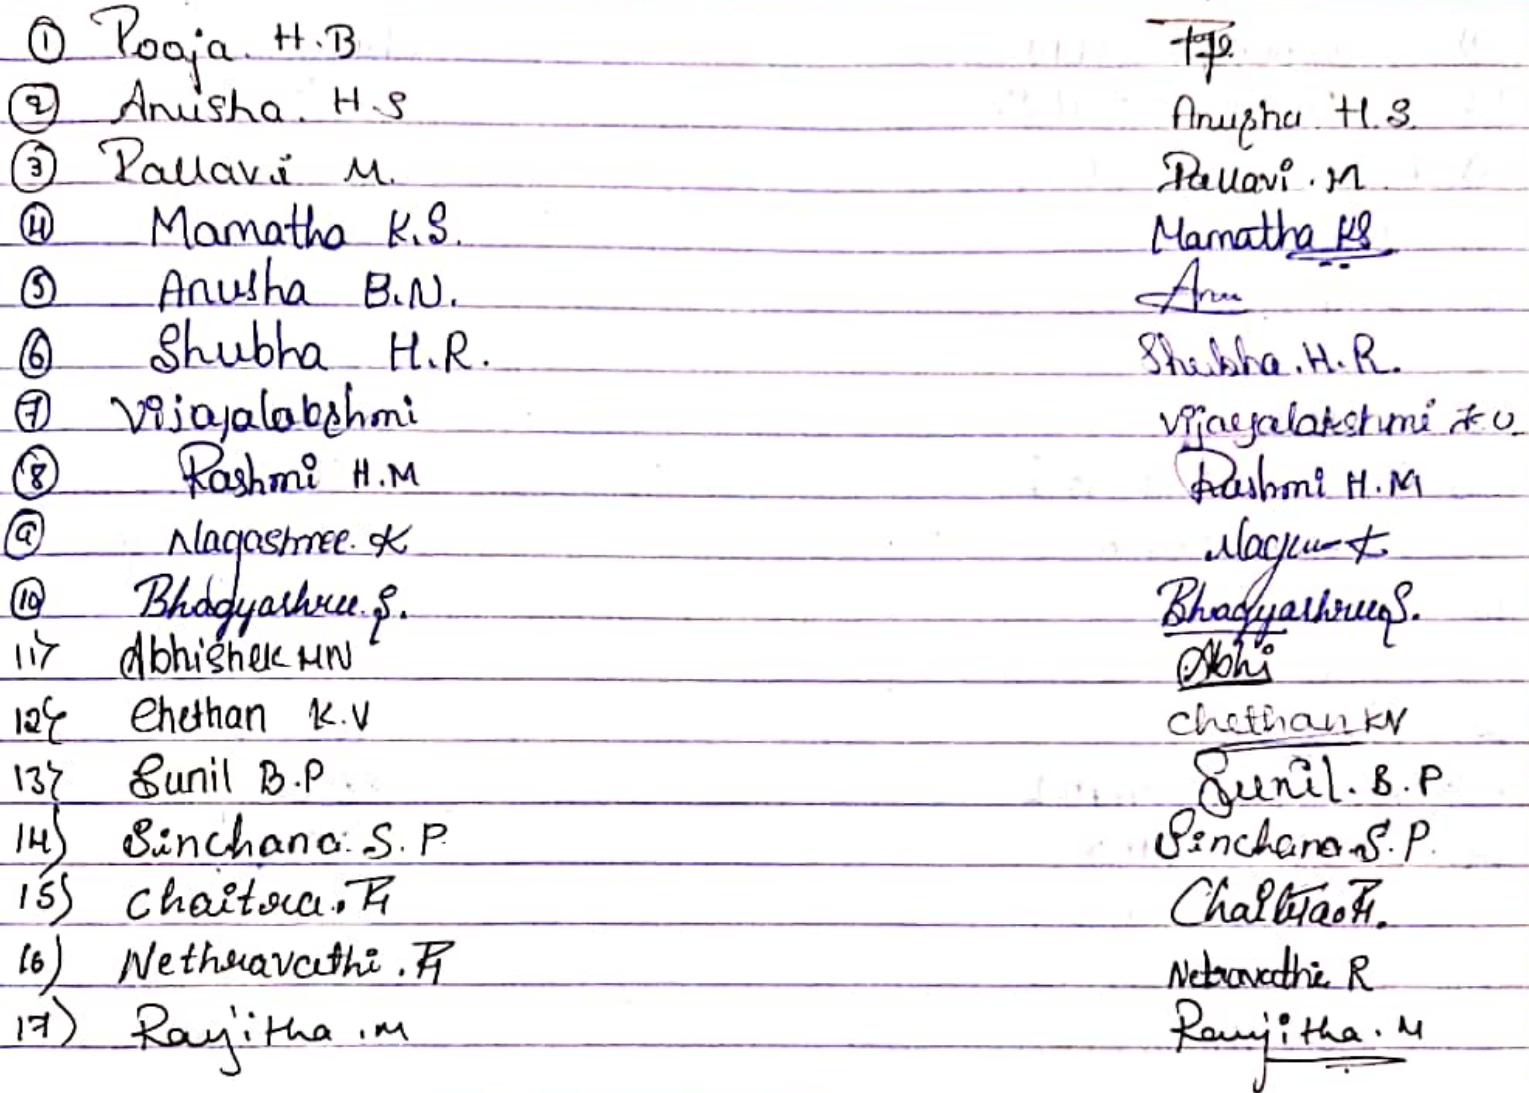 ① Pooja. H.B
② Anusha. H.S Anusha H.S.
③ Pallavi M. Pallavi . M
④ Mamatha K.S. Mamatha KS
⑤ Anusha B.N. Anu
⑥ Shubha H.R. Shubha . H. R.
⑦ Vijayalakshmi Vijayalakshmi
⑧ Rashmi H.M Rashmi H.M
⑨ Nagashree. K
⑩ Bhagyashree. S. Bhagyashree S.
11) Abhishek MN Abhi
12) Chethan K.V Chethan KV
13) Sunil B.P Sunil. B. P
14) Sinchana. S. P. Sinchana. S. P.
15) Chaitra. R Chaitra. R.
16) Nethravathi . R Netravathi R
17) Ranjitha . M Ranjitha . M